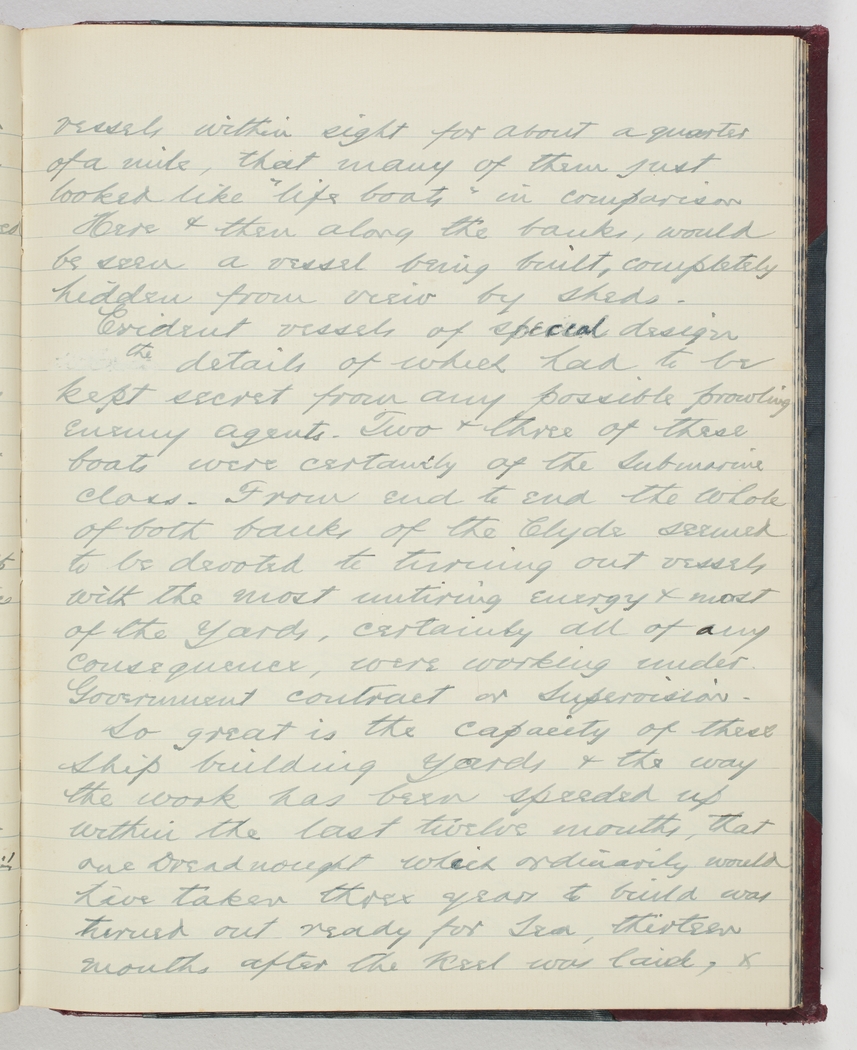 vessels within sight for about a quarter
of a mile, that many of them just
looked like "life boats" in comparison
Here & then along the banks, would
be seen a vessel being built, completely
hidden from view by sheds.
Evident vessels of special design
the details of which had to be
kept secret from any possible prowling
enemy agents. Two & three of these
boats were certainly of the Submarine
class. From end to end the whole
of both banks of the Clyde seemed
to be devoted to turning out vessels
with the most untiring energy & most
of the Yards, certainly all of any
consequence, were working under
Government contract or Supervision.
So great is the capacity of these
Ship building Yards & the way
the work has been speeded up
within the last twelve months, that
one Dreadnought which ordinarily would
have taken three years to build was
turned out ready for Sea, thirteen
months after the Keel was laid, &